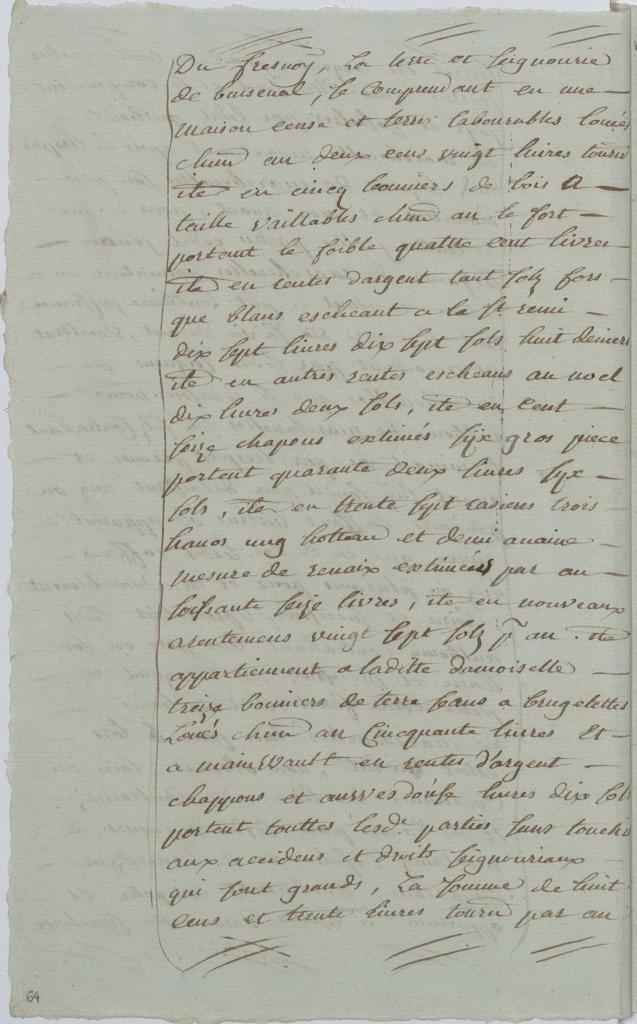 Du fresnoy, La terre et seignourie
de buisenal, se Comprendant en une
maison cense et terres labourables louées
chũn an deux cens vaingt livres tourñ
itẽ en cincq bonniers de bois a
taille vaillables chũn an le fort
portant le foible quattre cent livres
itẽ en rentes d'argent tant solz fors
que blans escheant a la St remi
dix sept livres dix sept sols huit deniers
itẽ en autres rentes escheans au noel
dix livres deux sols, itẽ en Cent
seize chapons extimés syx gros piece
portent quarante deux livres syx
sols, itẽ en trente sept rasieres trois
havos ung hotteau et demi avaine
mesure de renaix extimées par an
soissante seize livres, itẽ en nouveaux
arentemens vaingt sept solz p̃ an. itẽ
appartiennent a laditte damoiselle
treize bonniers de terre sans a brugelettes
Loués chũn an Cincquante livres Et
a mainwault en rentes d'argent
chappons et douse livres dix sols
portent touttes lesd.e parties sans touchi
aux accidens et droits seignouriaux
qui sont grands, La somme de huit
cens et trente livres tourñ par an
64